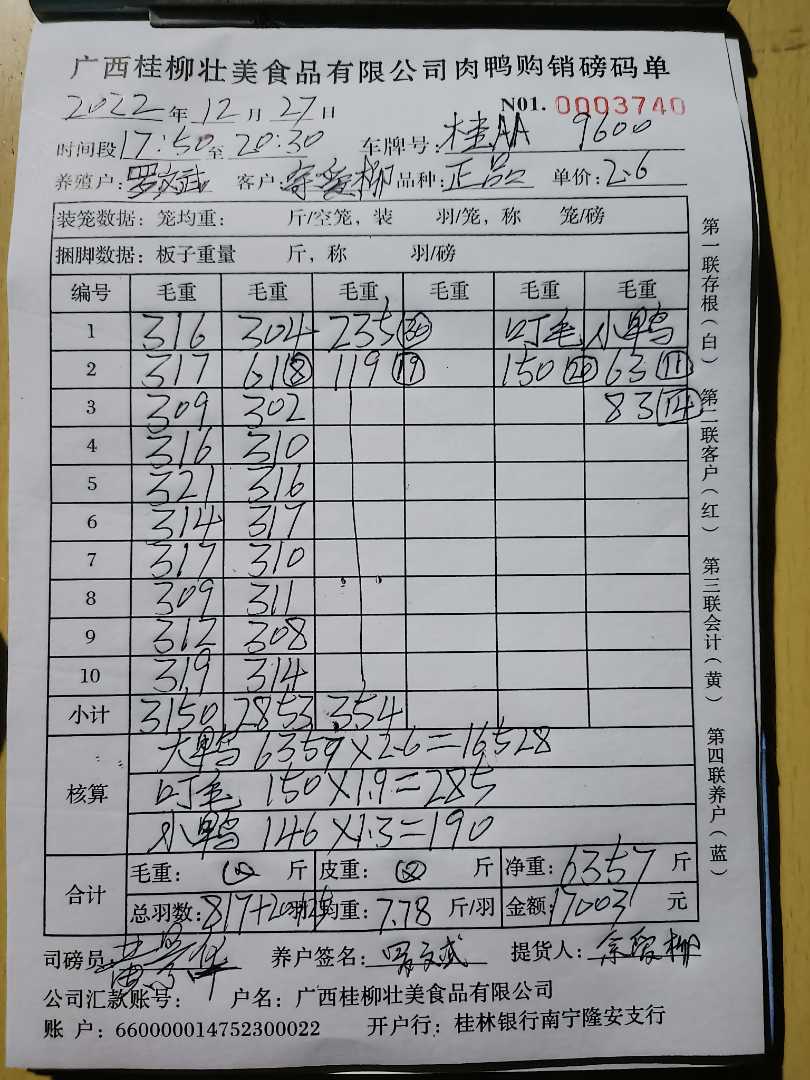 广西桂柳壮美食品有限公司肉鸭购销磅码单
2022年12月27日 N01. 0003740
时间段17:50至20:30 车牌号:桂AA 9600
养殖户:罗文斌 客户: 柳 品种:正品 单价:2.6
装笼数据:笼均重: 斤/空笼,装 羽/笼,称 笼/磅
捆脚数据:板子重量 斤,称 羽/磅
编号 毛重 毛重 毛重 毛重 毛重 毛重
1 316 304 235 30 叮毛 小鸭
2 317 61 8 119 19 150 20 63 11
3 309 302 83 14
4 316 310
5 321 316
6 314 317
7 317 310
8 309 311
9 312 308
10 319 314
小计 3150 2853 354
核算 大鸭 6357×2.6=16528
叮毛 150×1.9=285
小鸭 146×1.3=190
合计 毛重: 斤 皮重: 斤 净重:6357斤
总羽数:817+20+25羽 均重:7.78斤/羽 金额:17003元
司磅员: 养户签名:罗文斌 提货人: 柳
公司汇款账号: 户名:广西桂柳壮美食品有限公司
账 户:660000014752300022 开户行:桂林银行南宁隆安支行
第一联存根(白) 第二联客户(红) 第三联会计(黄) 第四联养户(蓝)